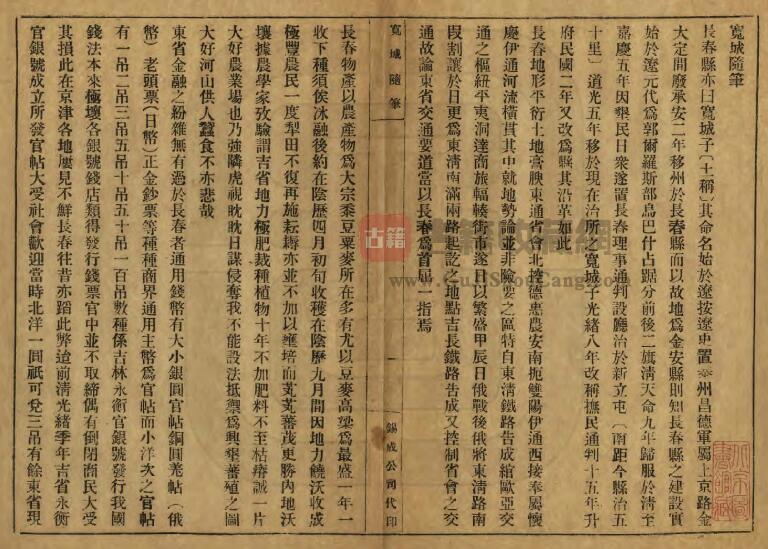 寬城隨筆
長春縣亦曰寬城子（土稱）其命名始於遼按遼史置泰州昌德軍屬上京路金
大定間廢承安二年移州於長春縣而以故地為金安縣則知長春縣之建設實
始於遼元代為郭爾羅斯部烏巴什占踞分前後二旗淸天命九年歸服於淸至
嘉慶五年因墾民日衆遂置長春理事通判設廳治於新立屯（南距今縣治五
十里）道光五年移於現在治所之寬城子光緒八年改稱撫民通判十五年升
府民國二年又改為縣其沿革如此
長春地形平衍土地膏腴東通省會北控德惠農安南扼雙陽伊通西接奉屬懷
慶伊通河流橫貫其中就地勢論並非險要之區特自東淸鐵路告成綰歐亞交
通之樞紐平夷洞達商旅輻輳街市遂日以繁盛甲辰日俄戰後俄將東淸路南
段割讓於日更為東淸南滿兩路起訖之地點吉長鐵路告成又控制省會之交
通故論東省交通要道當以長春為首屈一指焉
寬城隨筆
一
錫成公司代印
長春物產以農產物為大宗黍豆粟麥所在多有尤以豆麥高梁為最盛一年一
收下種須俟冰融後約在陰歷四月初旬收穫在陰歷九月間因地力饒沃收成
極豐農民一度犁田不復再施耘耨亦並不加以壅培而芃芃蕃茂更勝內地沃
壤據農學家攷驗謂吉省地力極肥栽種植物十年不加肥料不至枯瘠誠一片
大好農業場也乃強隣虎視眈眈日謀侵奪我不能設法抵禦為興墾蕃殖之圖
大好河山供人蠶食不亦悲哉
東省金融之紛雜無有過於長春者通用錢幣有大小銀圓官帖銅圓羌帖（俄
幣）老頭票（日幣）正金鈔票等種種商界通用主幣為官帖而小洋次之官帖
有一吊二吊三吊五吊十吊五十吊一百吊數種係吉林永衡官銀號發行我國
錢法本來極壞各銀號錢店類得發行錢票官中並不取締偶有倒閉商民大受
其損此在京津各地屢見不鮮長春往昔亦蹈此弊迨前淸光緒季年吉省永衡
官銀號成立所發官帖大受社會歡迎當時北洋一圓祇可兌三吊有餘東省現
古籍
www.GujiShouCang.com